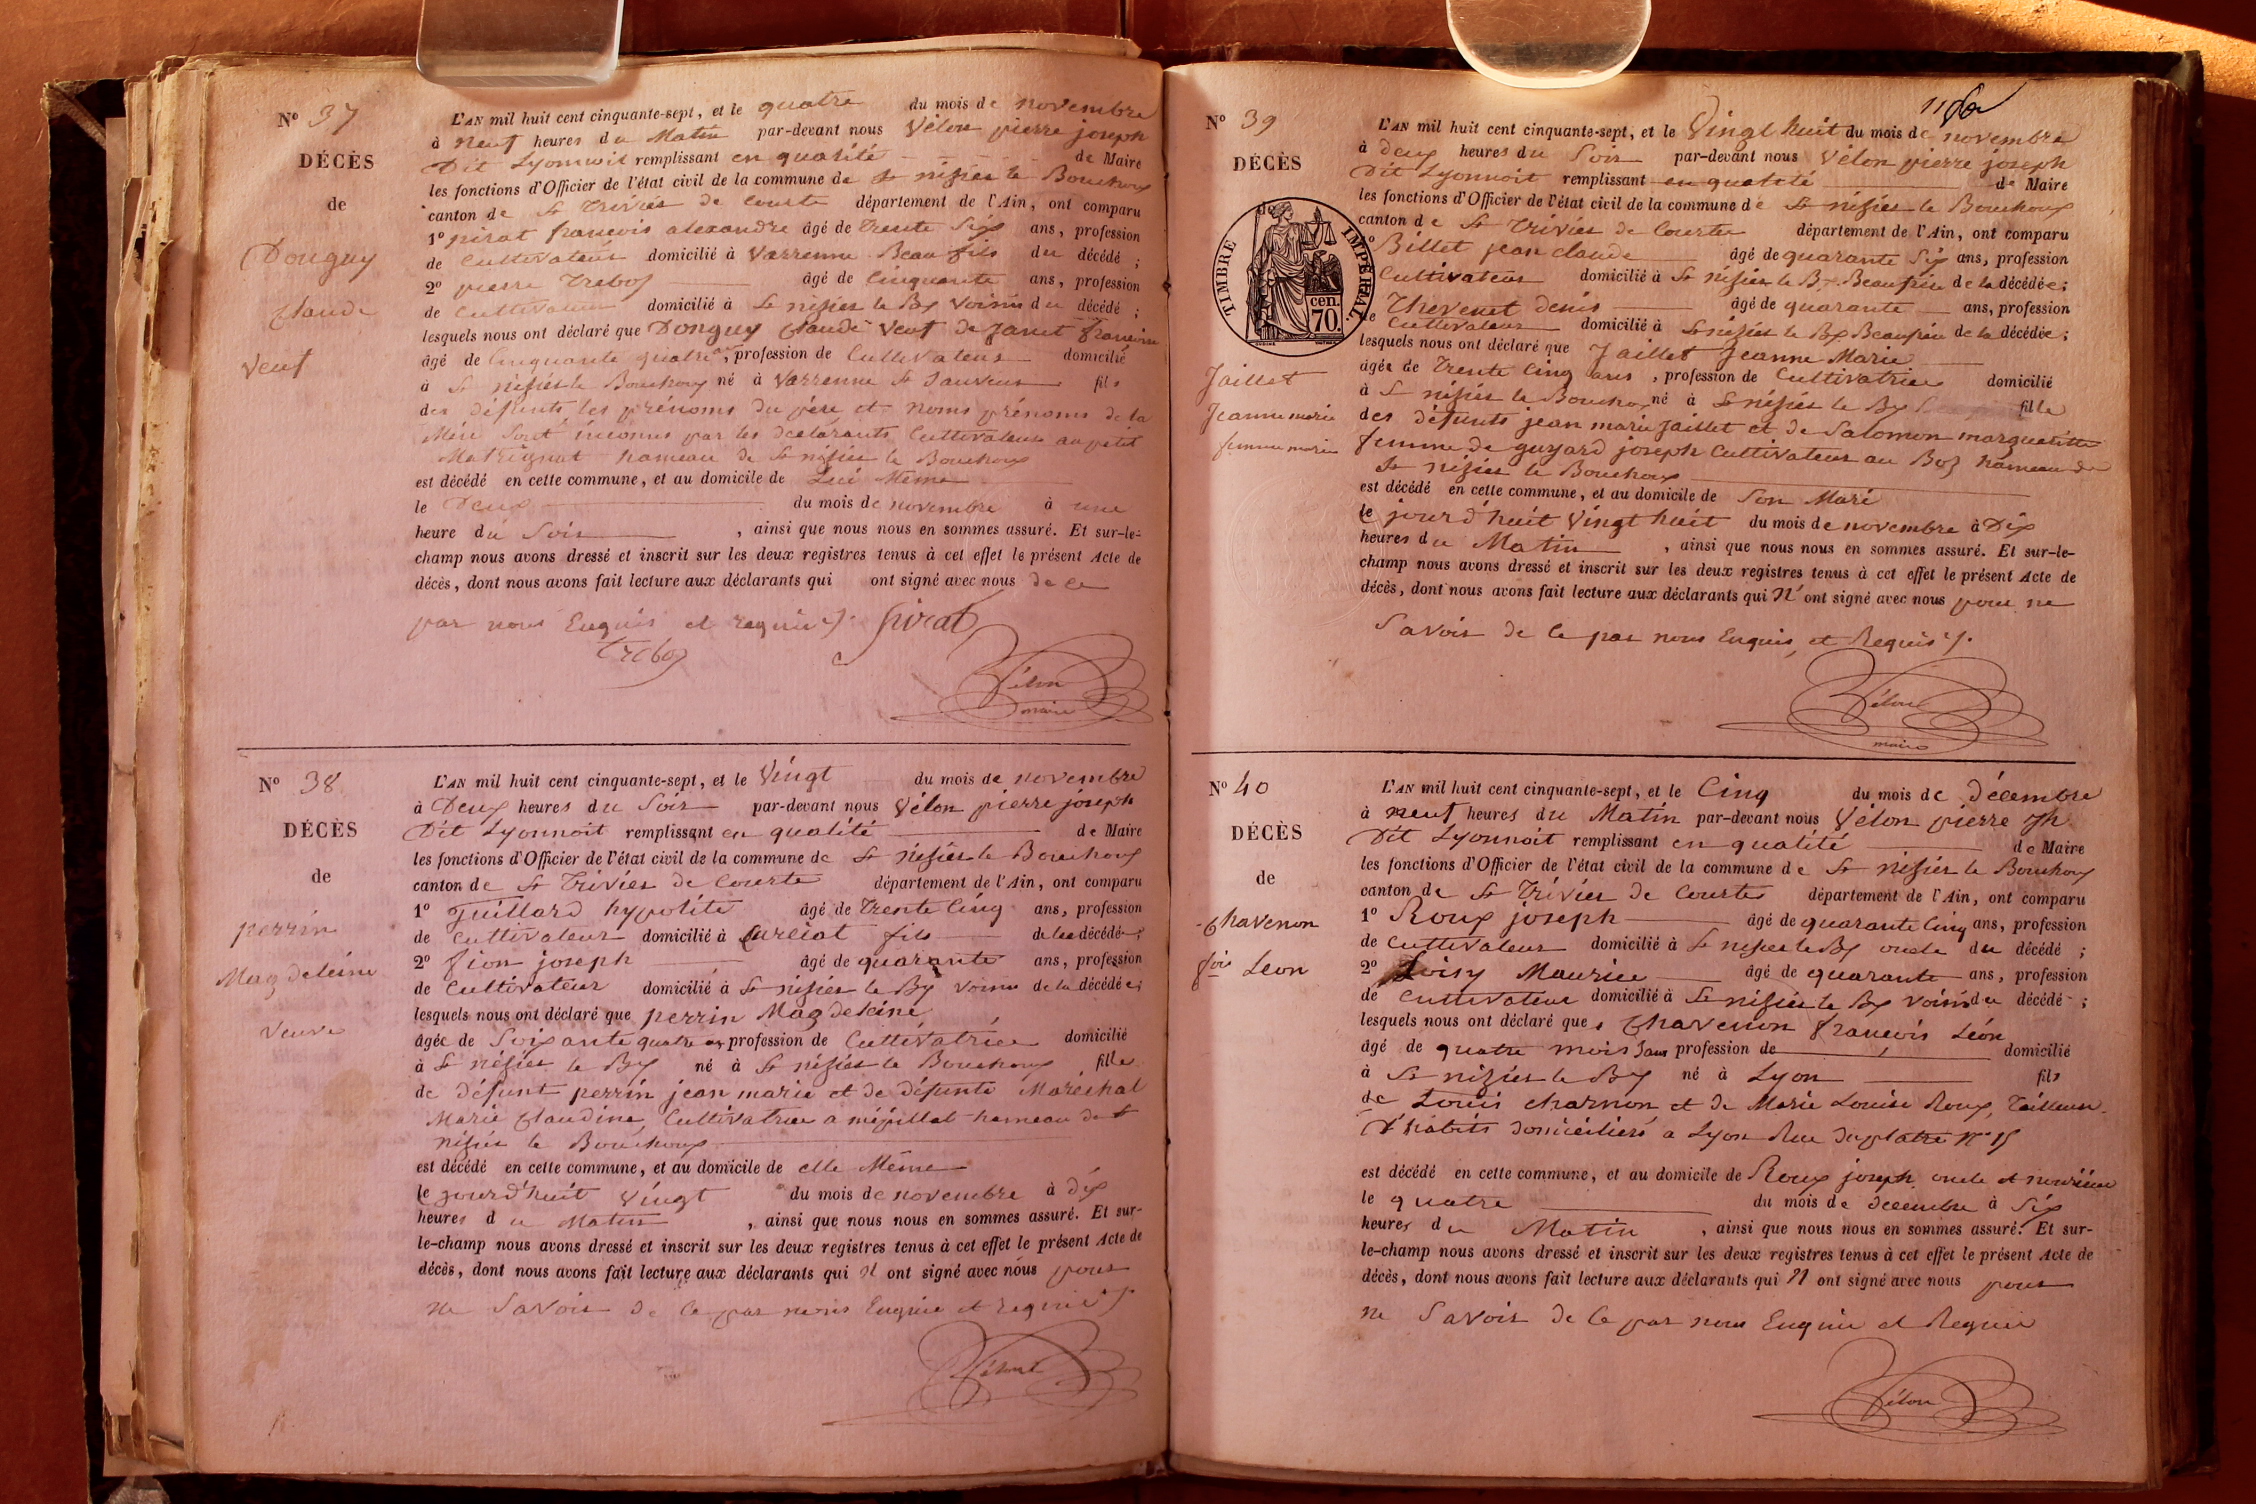 N° 37
DÉCÈS
de
Donguy
Claude
veuf
L'AN mil huit cent cinquante-sept, et le quatre du mois de novembre
à neuf heures du Matin par-devant nous Vélon pierre joseph
Dit Lyonnoit remplissant en qualité de Maire
les fonctions d'Officier de l'état civil de la commune de St nizier le Bouchoux
canton de St Trivier de Courte département de l'Ain, ont comparu
1° pirat francois alexandre âgé de Trente Six ans, profession
de Cultivateur domicilié à Varenne Beau fils du décédé ;
2° pierre Treboz âgé de Cinquante ans, profession
de Cultivateur domicilié à St nizier le Bx Voisin du décédé ;
lesquels nous ont déclaré que Donguy Claude veuf de Janet francoise
âgé de Cinquante quatre ans, profession de Cultivateur domicilié
à St nizier le Bouchoux né à Varenne St Sauveur fils
des défunts les prénoms du père et noms prénoms de la
Mère Sont inconnus par les déclarants, Cultivateur au petit
Matrignat hameau de St nizier le Bouchoux
est décédé en cette commune, et au domicile de Lui Même
le Deux du mois de novembre à une
heure du Soir , ainsi que nous nous en sommes assuré. Et sur-le-
champ nous avons dressé et inscrit sur les deux registres tenus à cet effet le présent Acte de
décès, dont nous avons fait lecture aux déclarants qui ont signé avec nous de ce
par nous Enquis et requis /. pirat
Treboz
Vélon
maire
N° 38
DÉCÈS
de
perrin
Magdeleine
veuve
L'AN mil huit cent cinquante-sept, et le Vingt du mois de novembre
à Deux heures du Soir par-devant nous Vélon pierre joseph
Dit Lyonnoit remplissant en qualité de Maire
les fonctions d'Officier de l'état civil de la commune de St nizier le Bouchoux
canton de St Trivier de Courte département de l'Ain, ont comparu
1° Guillard hypolite âgé de Trente Cinq ans, profession
de Cultivateur domicilié à Curciat fils de la décédé ;
2° fion joseph âgé de quarante ans, profession
de Cultivateur domicilié à St nizier le Bx voisin de la décédée ;
lesquels nous ont déclaré que perrin Magdeleine
âgée de Soixante quatre ans profession de Cultivatrice domicilié
à St nizier le Bx né à St nizier le Bouchoux fille
de défunt perrin jean marie et de défunte Maréchal
Marie Claudine, Cultivatrice a méjullat hameau de St
nizier le Bouchoux
est décédé en cette commune, et au domicile de elle Même
le jourd'huit vingt du mois de novembre à dix
heures du Matin , ainsi que nous nous en sommes assuré. Et sur-
le-champ nous avons dressé et inscrit sur les deux registres tenus à cet effet le présent Acte de
décès, dont nous avons fait lecture aux déclarants qui N ont signé avec nous pour
ne Savoir de Ce par nous Enquis et requis /.
Vélon
N° 39
DÉCÈS
TIMBRE IMPÉRIAL.
70 cen.
Jaillet
Jeanne marie
femme marie
L'AN mil huit cent cinquante-sept, et le Vingt huit du mois de novembre
à Deux heures du Soir par-devant nous Vélon pierre joseph
Dit Lyonnoit remplissant en qualité de Maire
les fonctions d'Officier de l'état civil de la commune de St nizier le Bouchoux
canton de St Trivier de Courte département de l'Ain, ont comparu
1° Billet jean claude âgé de quarante Six ans, profession
Cultivateur domicilié à St nizier le Bx Beaufrere de la décédée ;
Thevenet denis âgé de quarante ans, profession
de Cultivateur domicilié à St nizier le Bx Beaufrere de la décédée ;
lesquels nous ont déclaré que Jaillet Jeanne Marie
âgée de Trente Cinq ans , profession de Cultivatrice domicilié
à St nizier le Bouchoux né à St nizier le Bx fille
des défunts jean marie Jaillet et de Salomon margueritte
femme de guyard joseph Cultivateur au Boz hameau de
St nizier le Bouchoux
est décédé en cette commune, et au domicile de Son Mari
le jourd'huit Vingt huit du mois de novembre à Dix
heures du Matin , ainsi que nous nous en sommes assuré. Et sur-le-
champ nous avons dressé et inscrit sur les deux registres tenus à cet effet le présent Acte de
décès, dont nous avons fait lecture aux déclarants qui N' ont signé avec nous pour ne
Savoir de Ce par nous Enquis, et Requis /.
Vélon
maire
N° 40
DÉCÈS
de
Chavenon
fois Leon
L'AN mil huit cent cinquante-sept, et le Cinq du mois de décembre
à neuf heures du Matin par-devant nous Vélon pierre jh
Dit Lyonnoit remplissant en qualité de Maire
les fonctions d'Officier de l'état civil de la commune de St nizier le Bouchoux
canton de St Trivier de Courtes département de l'Ain, ont comparu
1° Roux joseph âgé de quarante Cinq ans, profession
de Cultivateur domicilié à St nizier le Bx oncle du décédé ;
2° Loisy Maurice âgé de quarante ans, profession
de Cultivateur domicilié à St nizier le Bx voisin du décédé ;
lesquels nous ont déclaré que Chavenon francois Léon
âgé de quatre mois Sans profession de domicilié
à St nizier le Bx né à Lyon fils
de Louis charnon et de Marie Louise Roux, Tailleur
D'habits domiciliers a Lyon Rue du platre n° 15
est décédé en cette commune, et au domicile de Roux joseph oncle et
le quatre du mois de decembre à Six
heures du Matin , ainsi que nous nous en sommes assuré. Et sur-
le-champ nous avons dressé et inscrit sur les deux registres tenus à cet effet le présent Acte de
décès, dont nous avons fait lecture aux déclarants qui N ont signé avec nous pour
ne Savoir de Ce par nous Enquis et Requis
Vélon